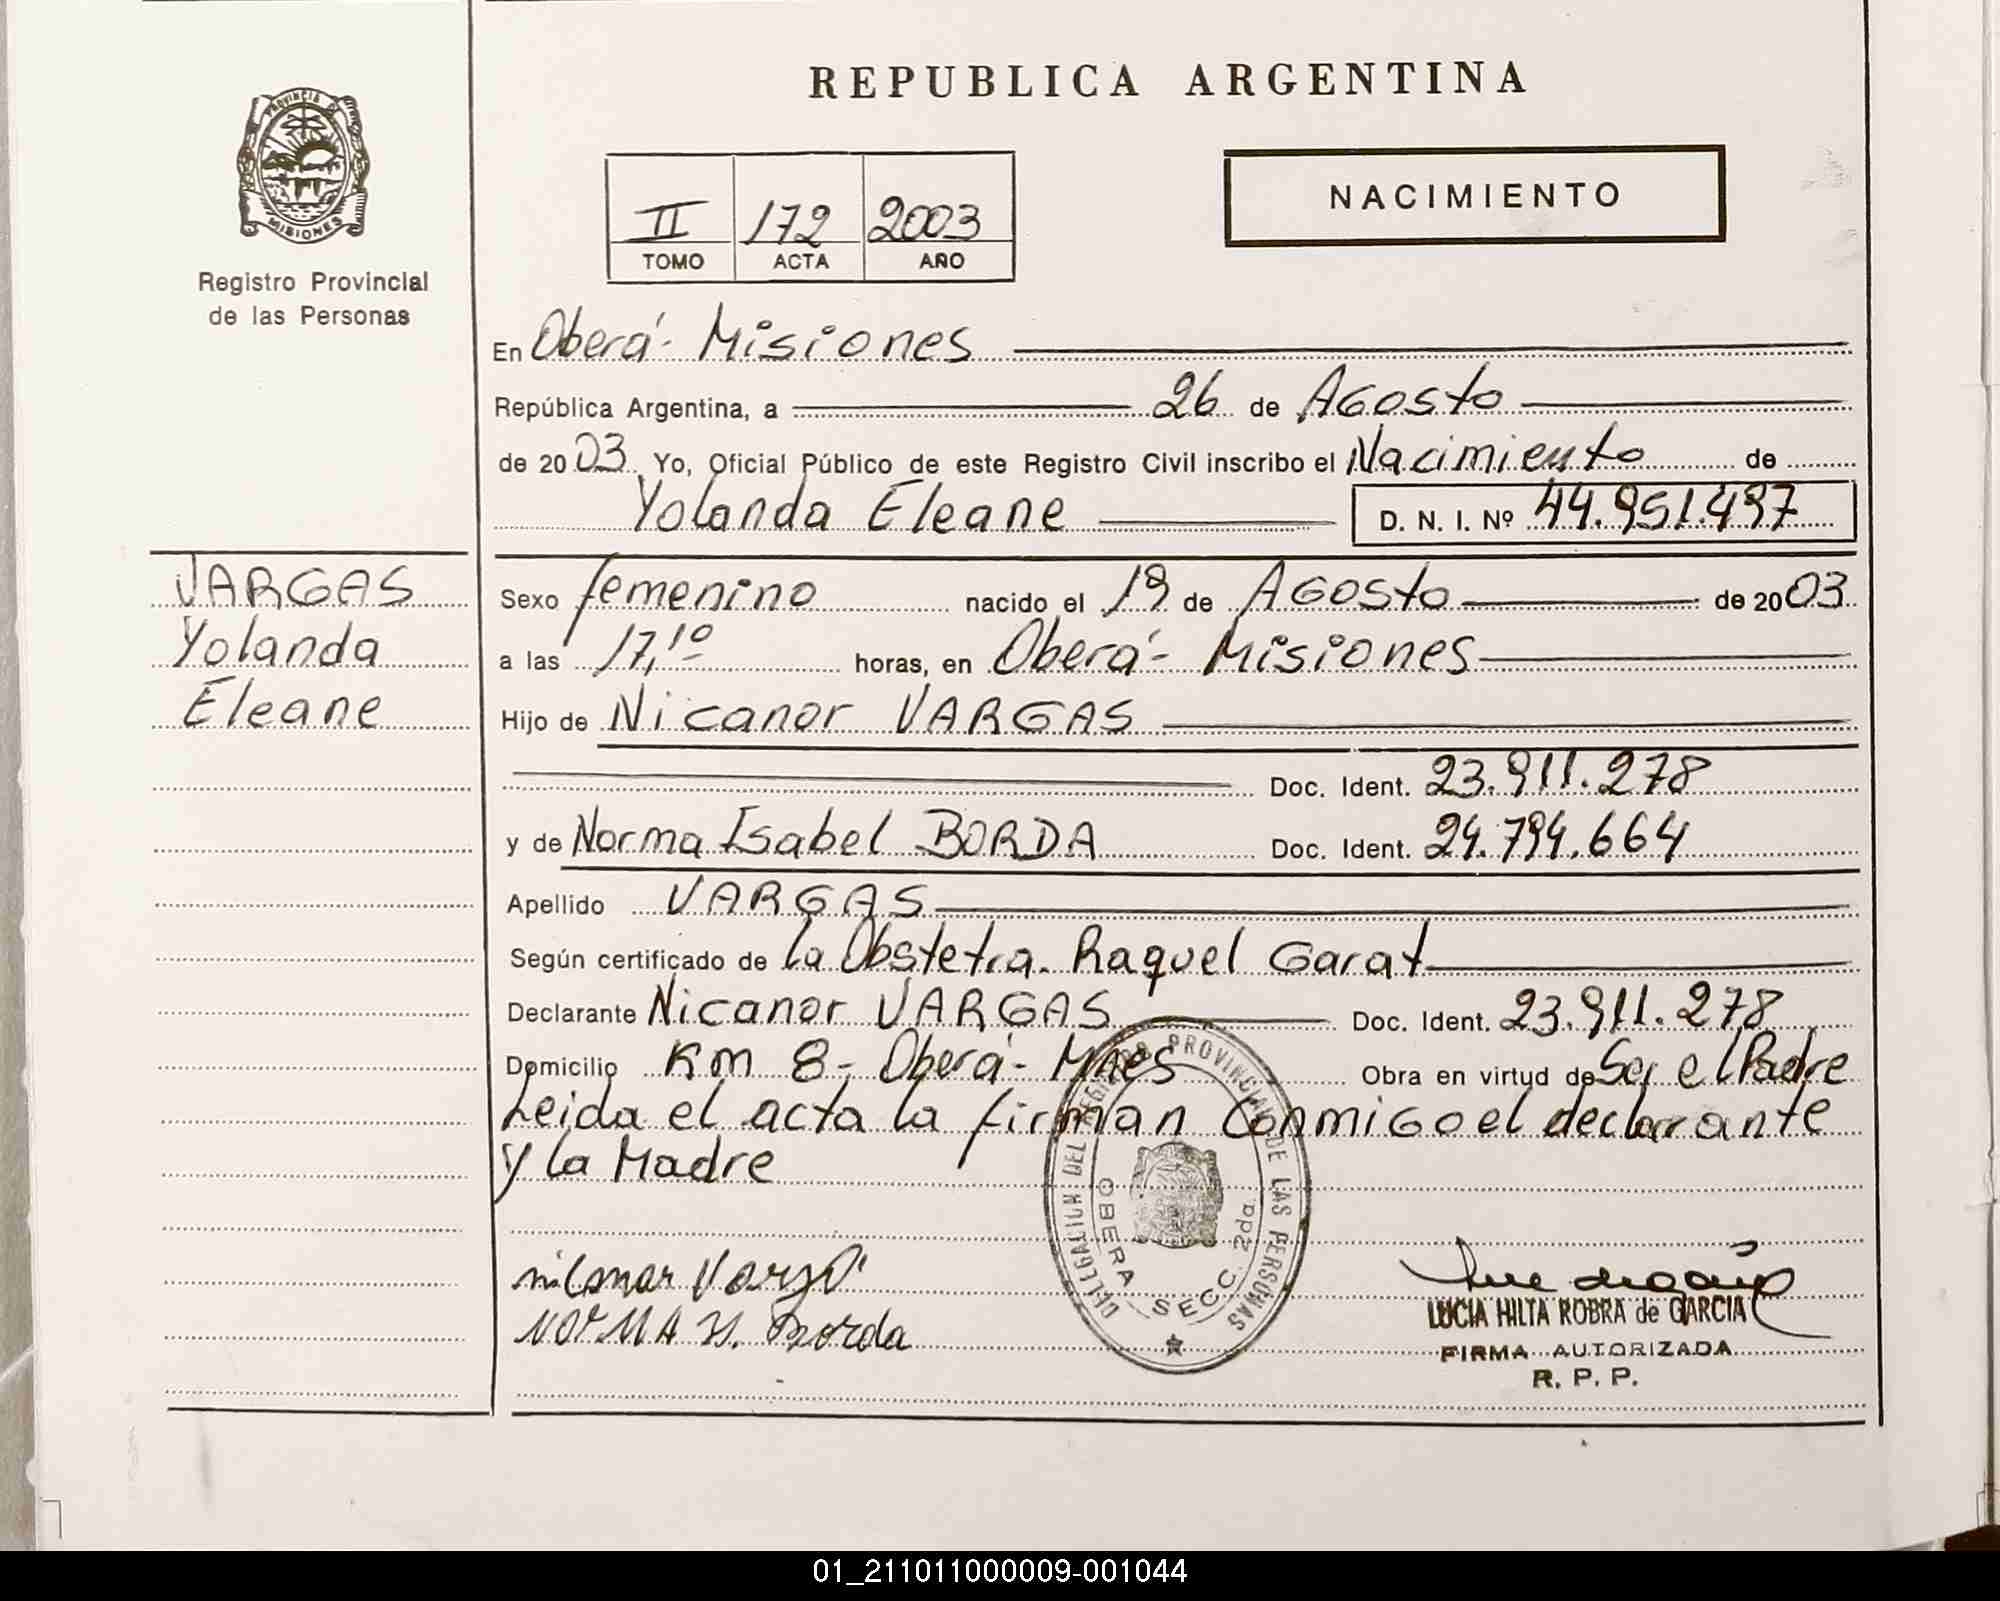 REPUBLICA ARGENTINA
PROVINCIA DE MISIONES
Registro Provincial
de las Personas
II 172 2003
TOMO ACTA AÑO
NACIMIENTO
En Oberá - Misiones
República Argentina, a 26 de Agosto
de 2003 Yo, Oficial Público de este Registro Civil inscribo el Nacimiento de
Yolanda Eleane D. N. I. Nº 44.951.497
VARGAS
Yolanda
Eleane
Sexo femenino nacido el 19 de Agosto de 2003
a las 17,10 horas, en Oberá - Misiones
Hijo de Nicanor VARGAS
Doc. Ident. 23.911.278
y de Norma Isabel BORDA Doc. Ident. 24.794.664
Apellido VARGAS
Según certificado de la Obstetra. Raquel Garat
Declarante Nicanor VARGAS Doc. Ident. 23.911.278
Domicilio Km 8 - Oberá - Mnes Obra en virtud de Ser el Padre
Leida el acta la firman Conmigo el declarante
y la Madre
DELEGACION DEL REGISTRO PROVINCIAL DE LAS PERSONAS
OBERA SECC. 2da.
NORMA I. Borda
LUCIA HILTA ROBRA de GARCIA
FIRMA AUTORIZADA
R. P. P.
01_211011000009-001044